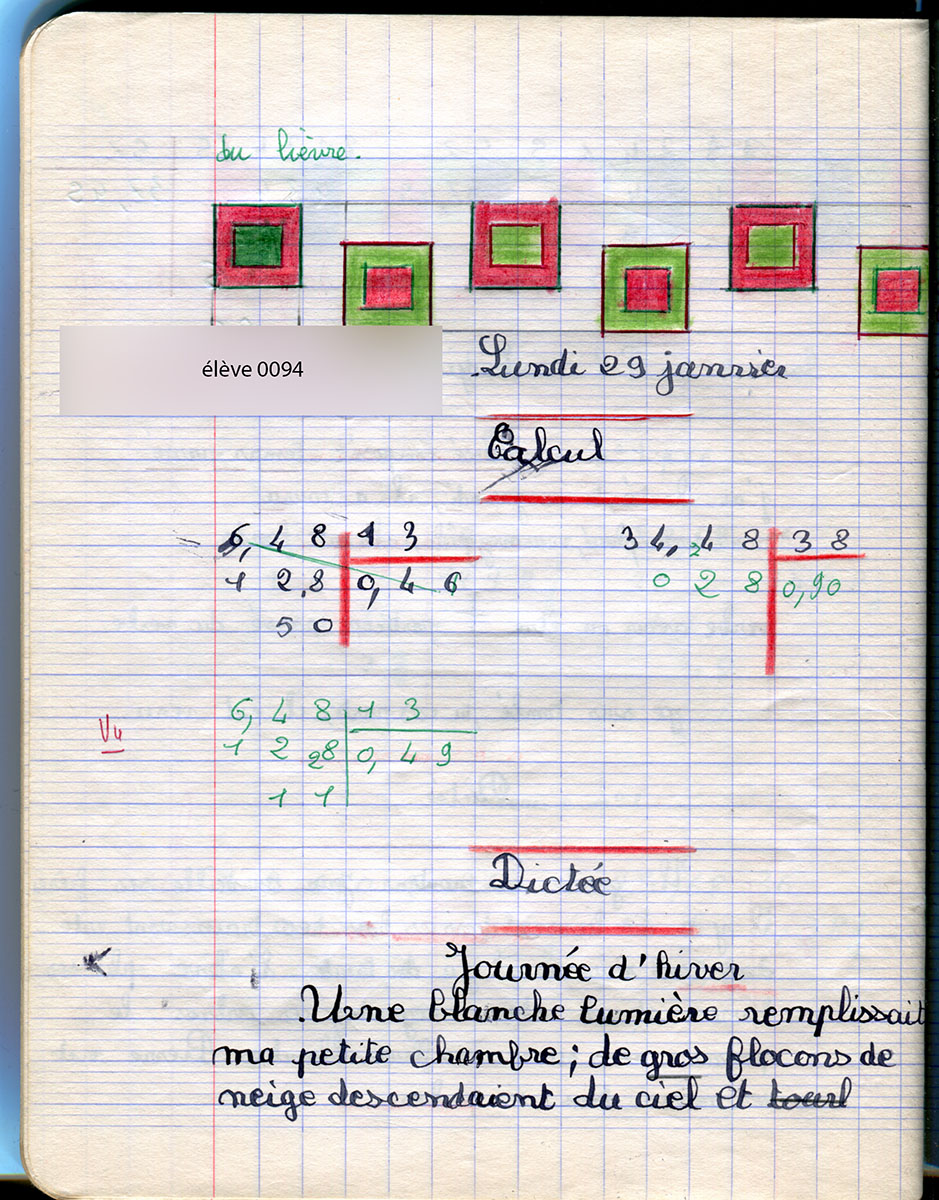 du lièvre.
élève 0094
Lundi 29 janvier
Calcul
6,48 13 34,48 38
128 0,46 028 0,90
50
6,48 13
Vu
128 0,49
11
Dictée
Journée d'hiver
Une blanche lumière remplissait
ma petite chambre ; de gros flocons de
neige descendaient du ciel et tourl